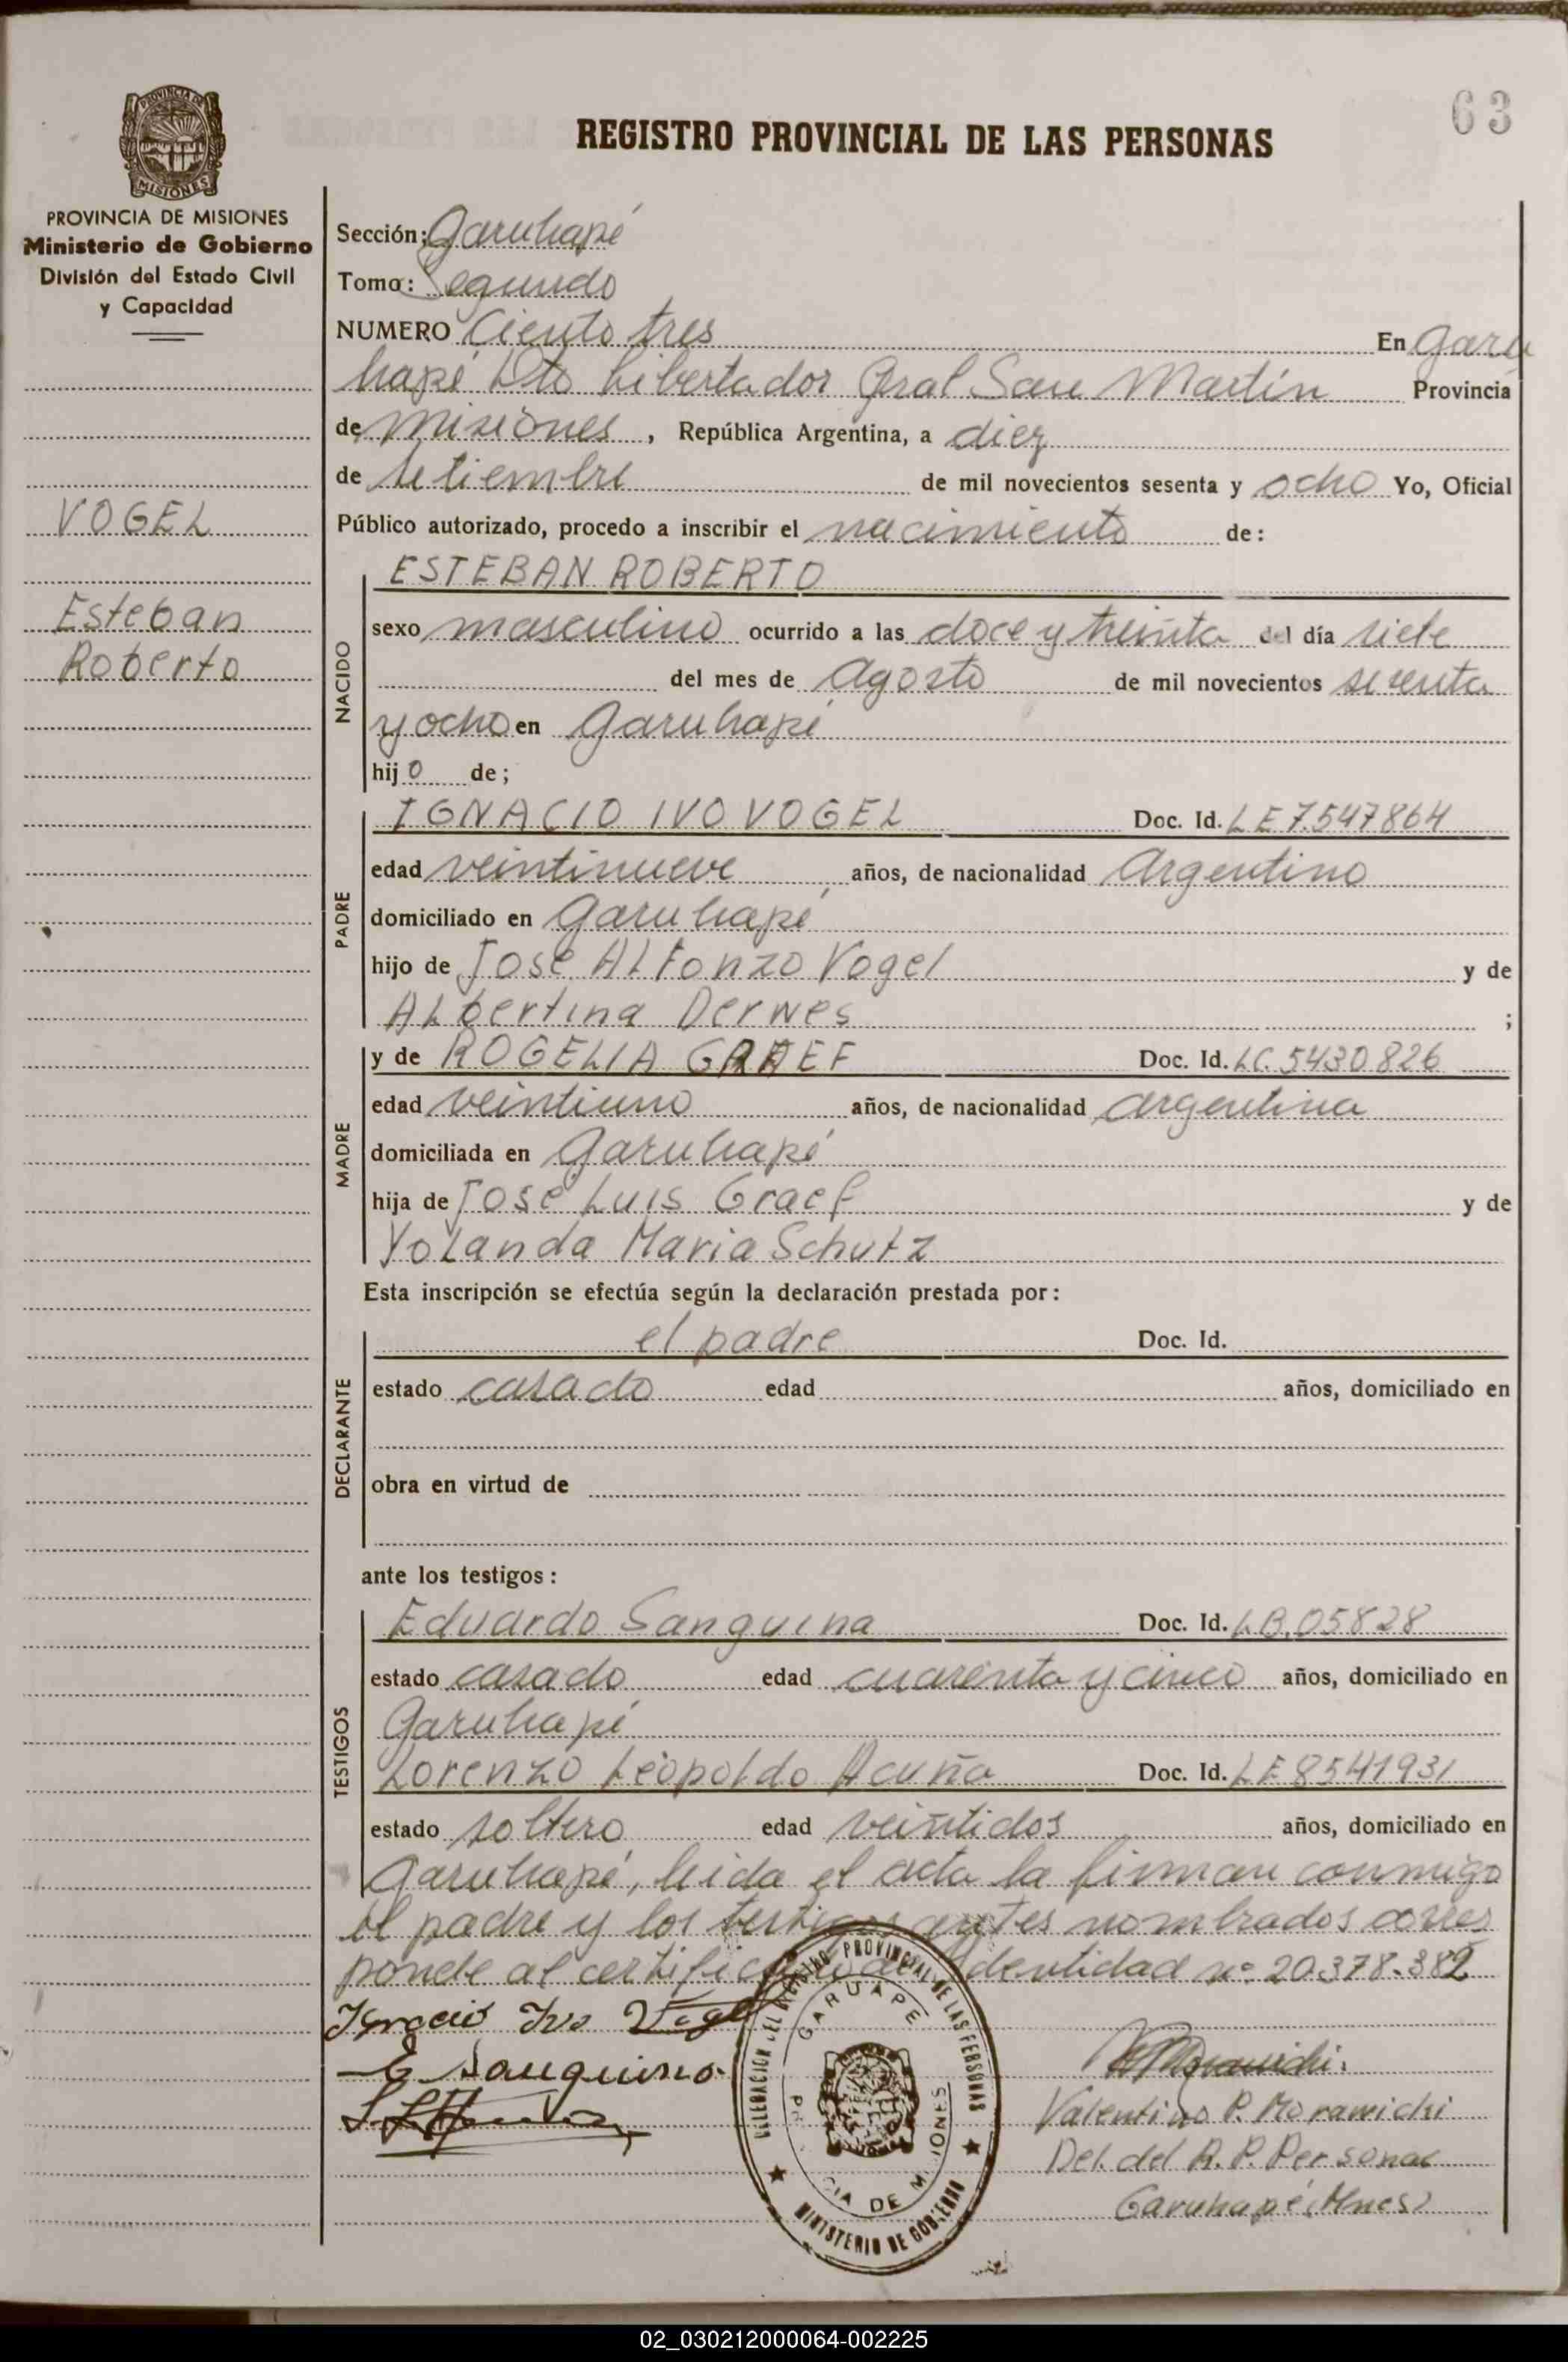 63
PROVINCIA DE
MISIONES
REGISTRO PROVINCIAL DE LAS PERSONAS
PROVINCIA DE MISIONES
Ministerio de Gobierno
División del Estado Civil
y Capacidad
VOGEL
Esteban
Roberto
Sección: Garuhapé
Tomo: Segundo
NUMERO Ciento tres En Garu
hapé Dto Libertador Gral San Martín Provincia
de Misiones, República Argentina, a diez
de setiembre de mil novecientos sesenta y ocho Yo, Oficial
Público autorizado, procedo a inscribir el nacimiento de:
NACIDO
ESTEBAN ROBERTO
sexo masculino ocurrido a las doce y treinta del día siete
del mes de Agosto de mil novecientos sesenta
y ocho en Garuhapé
hijo de;
PADRE
IGNACIO IVO VOGEL Doc. Id. LE 7.547864
edad veintinueve años, de nacionalidad Argentino
domiciliado en Garuhapé
hijo de José ALFonzo Vogel y de
ALbertina Derwes ;
MADRE
y de ROGELIA GRAEF Doc. Id. LC.5430826
edad veintiuno años, de nacionalidad argentina
domiciliada en Garuhapé
hija de José Luis Graef y de
YoLanda Maria Schutz
Esta inscripción se efectúa según la declaración prestada por:
DECLARANTE
el padre Doc. Id.
estado casado edad años, domiciliado en
obra en virtud de
ante los testigos:
TESTIGOS
Eduardo Sanguina Doc. Id. LB.05828
estado casado edad cuarenta y cinco años, domiciliado en
Garuhapé
Lorenzo Leopoldo Acuña Doc. Id. LE 8541931
estado soltero edad veintidos años, domiciliado en
Garuhapé, leida el acta la firman conmigo
el padre y los testigos antes nombrados corres
ponde al certificado de Identidad nº 20.378.382
Ignacio Ivo Vogel
E Sanguina
DELEGACION DEL REGISTRO PROVINCIAL DE LAS PERSONAS
GARUAPE
PROVINCIA DE MISIONES
MINISTERIO DE GOBIERNO
Valentino P. Morawichi
Del. del R. P. Personas
Garuhapé (Mnes)
02_030212000064-002225